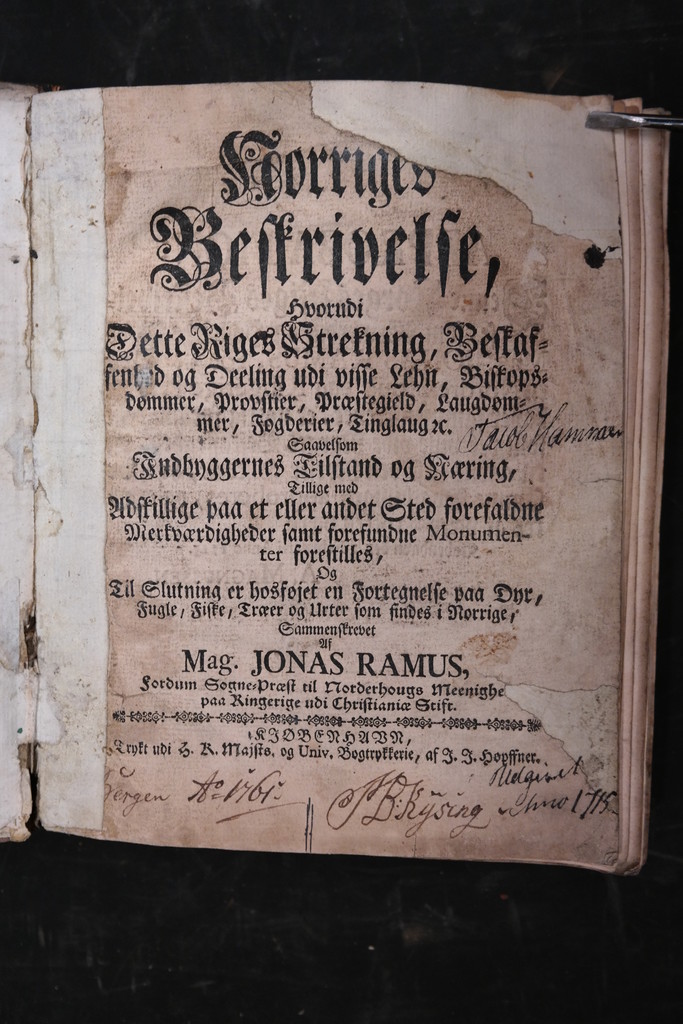 Norriges
Beskrivelse,
Hvorudi
Dette Riges Strekning, Beskaf-
fenhed og Deeling udi visse Lehn, Biskops-
dømmer, Provstier, Præstegield, Laugdøm-
mer, Fogderier, Tinglaug ꝛc.
Jacob Hammar
Saavelsom
Indbyggernes Tilstand og Næring,
Tillige med
Adskillige paa et eller andet Sted forefaldne
Merkværdigheder samt forefundne Monumen-
ter forestilles,
Og
Til Slutning er hosføjet en Fortegnelse paa Dyr,
Fugle, Fiske, Træer og Urter som findes i Norrige,
Sammenskrevet
Af
Mag. JONAS RAMUS,
Fordum Sogne-Præst til Norderhougs Meenighe
paa Ringerige udi Christianiæ Stift.
KIØBENHAVN,
Trykt udi H. K. Majsts. og Univ. Bogtrykkerie, af J. J. Høpffner.
Udgivet
Bergen Ao 1761. B: Kÿsing Anno 1715